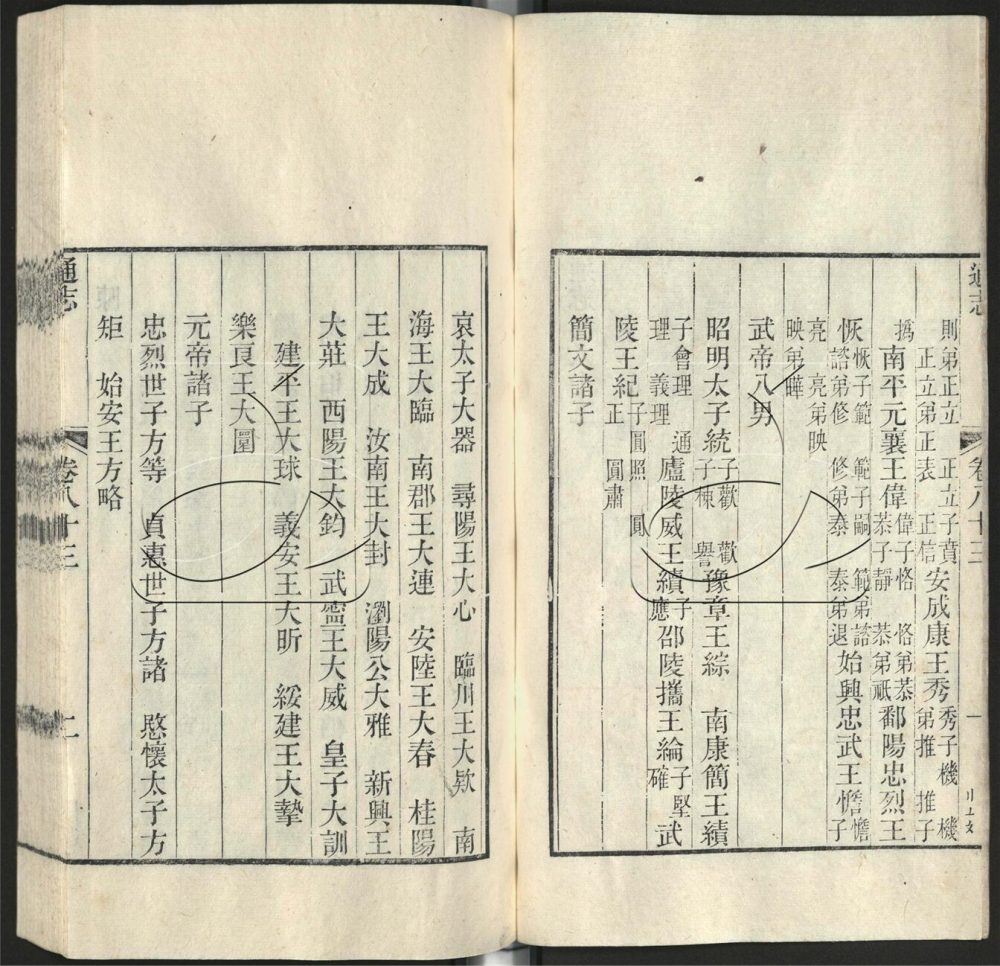 通志
卷八十三
一
則弟正立 正立弟正表 正立子賁 正信安成康王秀秀子機 機弟推 推子
撝南平元襄王偉偉子恪 恪弟恭 恭子靜 恭弟祇鄱陽忠烈王
恢恢子範 範子嗣 範弟諮 諮弟修 修弟泰 泰弟退始興忠武王憺憺子
亮 亮弟映 映弟曄
武帝八男
昭明太子統子歡 歡子棟 譽豫章王綜 南康簡王績
子會理 通理 義理廬陵威王續子應邵陵攜王綸子堅 確武
陵王紀子圓照 圓正 圓肅
簡文諸子
哀太子大器 尋陽王大心 臨川王大欵 南
海王大臨 南郡王大連 安陸王大春 桂陽
王大成 汝南王大封 瀏陽公大雅 新興王
大莊 西陽王大鈞 武寧王大威 皇子大訓
建平王大球 義安王大昕 綏建王大摯
樂良王大圜
元帝諸子
忠烈世子方等 貞惠世子方諸 愍懷太子方
矩 始安王方略
通志
卷八十三
二